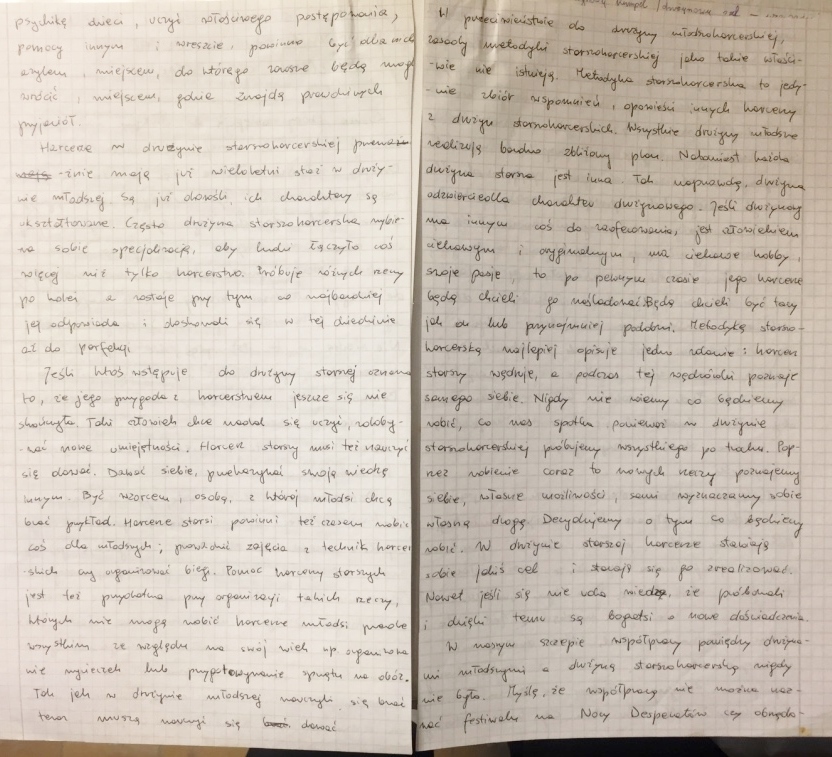 psychikę dzieci, uczyć właściwego postępowania,
pomocy innym i wreszcie, powinno być dla nich
azylem, miejscem, do którego zawsze będą mogli
wrócić, miejscem, gdzie znajdą prawdziwych
przyjaciół.
Harcerze w drużynie starszoharcerskiej
-żnie mają już wieloletni staż w druży-
nie młodszej. Są już dorośli, ich charaktery są
ukształtowane. Często drużyna starszoharcerska wybie-
ra sobie specjalizację, aby ludzi łączyło coś
więcej niż tylko harcerstwo. Próbuje różnych rzeczy
po kolei a zostaje przy tym co najbardziej
jej odpowiada i doskonali się w tej dziedzinie
aż do perfekcji.
Jeśli ktoś wstępuje do drużyny starszej oznacza
to, że jego przygoda z harcerstwem jeszcze się nie
skończyła. Taki człowiek chce nadal się uczyć, zdoby-
-wać nowe umiejętności. Harcerz starszy musi też nauczyć
się dawać. Dawać siebie, przekazywać swoją wiedzę
innym. Być wzorcem, osobą, z której młodsi chcą
brać przykład. Harcerze starsi powinni też czasem zrobić
coś dla młodszych; prowadzić zajęcia z technik harcer
-skich czy organizować biegi. Pomoc harcerzy starszych
jest też przydatna przy organizacji takich rzeczy,
których nie mogą zrobić harcerze młodsi przede
wszystkim ze względu na swój wiek np organizowa
nie wycieczek lub przygotowywanie sprzętu na obóz.
Tak jak w drużynie młodszej nauczyli się brać
teraz muszą nauczyć się dawać
W przeciwieństwie do drużyny młodszoharcerskiej,
zasady metodyki starszoharcerskiej jako takie właści-
-wie nie istnieją. Metodyka starszoharcerska to jedy-
-nie zbiór wspomnień, opowieści innych harcerzy
z drużyn starszoharcerskich. Wszystkie drużyny młodsze
realizują bardzo zbliżony plan. Natomiast każda
drużyna starsza jest inna. Tak naprawdę, drużyna
odzwierciedla charakter drużynowego. Jeśli drużynowy
ma innym coś do zaoferowania, jest człowiekiem
ciekawym i oryginalnym, ma ciekawe hobby,
swoje pasje, to po pewnym czasie jego harcerze
będą chcieli go naśladować. Będą chcieli być tacy
jak on lub przynajmniej podobni. Metodykę starszo-
harcerską najlepiej opisuje jedno zdanie: harcerz
starszy wędruje, a podczas tej wędrówki poznaje
samego siebie. Nigdy nie wiemy co będziemy
robić, co nas spotka ponieważ w drużynie
starszoharcerskiej próbujemy wszystkiego po trochu. Pop-
rzez robienie coraz to nowych rzeczy poznajemy
siebie, własne możliwości, sami wyznaczamy sobie
własną drogę. Decydujemy o tym co będziemy
robić. W drużynie starszej harcerze stawiają
sobie jakiś cel i starają się go zrealizować.
Nawet jeśli się nie uda wiedzą, że próbowali
i dzięki temu są bogatsi o nowe doświadczenia.
W naszym szczepie współpracy pomiędzy drużyna-
mi młodszymi a drużyną starszoharcerską nigdy
nie było. Myślę, że współpracą nie można naz-
wać festiwalu na Nocy Desperatów czy obrzędo-